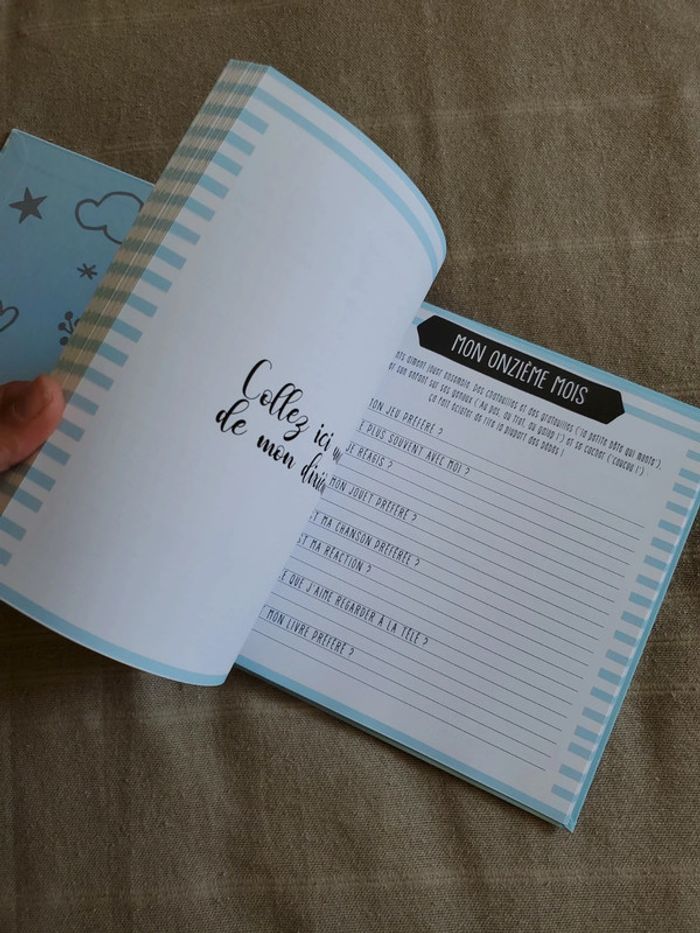 Collez ici
de mon
MON ONZIÈME MOIS
aiment jouer ensemble. Des chatouilles et des gratouilles ("la petite bête qui monte"),
son enfant sur ses genoux ("Au pas, au trot, au galop !") et se cacher ("coucou !") :
ça fait éclater de rire la plupart des bébés !
MON JEU PRÉFÉRÉ ?
PLUS SOUVENT AVEC MOI ?
JE RÉAGIS ?
MON JOUET PRÉFÉRÉ ?
MA CHANSON PRÉFÉRÉE ?
MA RÉACTION ?
QUE J'AIME REGARDER À LA TÉLÉ ?
MON LIVRE PRÉFÉRÉ ?